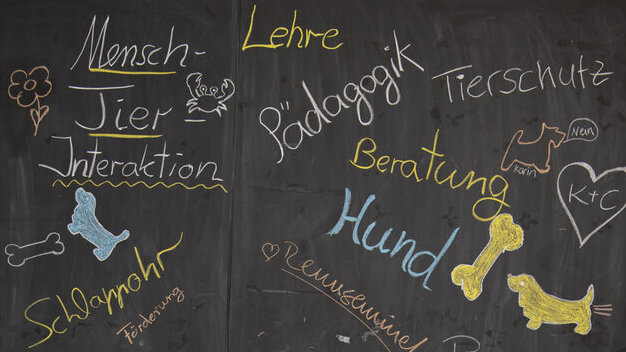 Mensch-
Tier
Interaktion
Schlappohr
Förderung
Lehre
Pädagogik
Tierschutz
Beratung
Nein
Karin
K+C
Hund
Rennsemmel